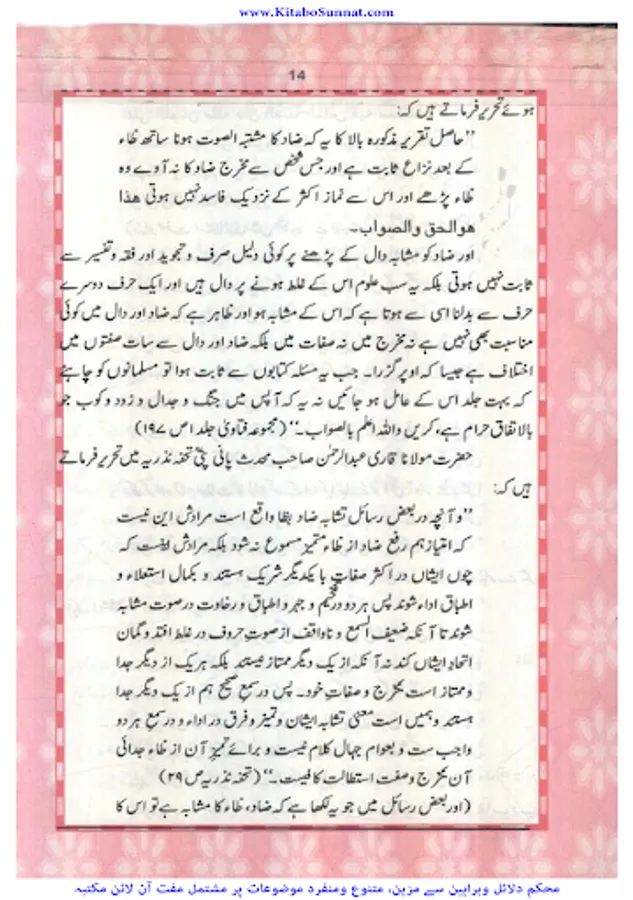 www.KitaboSunnat.com
14
ہوئے تحریر فرماتے ہیں کہ:
"حاصل تقریر مذکورہ بالا کا یہ کہ ضاد کا مشتبہ الصوت ہونا ساتھ ظاء
کے بعد نزاع ثابت ہے اور جس شخص سے مخرج ضاد کا نہ آوے وہ
ظاء پڑھے اور اس سے نماز اکثر کے نزدیک فاسد نہیں ہوتی ھذا
ھوالحق والصواب۔
اور ضاد کو مشابہ دال کے پڑھنے پر کوئی دلیل صرف و تجوید اور فقہ و تفسیر سے
ثابت نہیں ہوتی بلکہ یہ سب علوم اس کے غلط ہونے پر دال ہیں اور ایک حرف دوسرے
حرف سے بدلنا اسی سے ہوتا ہے کہ اس کے مشابہ ہو اور ظاہر ہے کہ ضاد اور دال میں کوئی
مناسبت بھی نہیں ہے نہ مخرج میں نہ صفات میں بلکہ ضاد اور دال سے سات صفتوں میں
اختلاف ہے جیسا کہ اوپر گزرا۔ جب یہ مسئلہ کتابوں سے ثابت ہوا تو مسلمانوں کو چاہئے
کہ بہت جلد اس کے عامل ہو جائیں نہ یہ کہ آپس میں جنگ و جدال و زدو وکوب جو
بالاتفاق حرام ہے، کریں واللہ اعلم بالصواب۔" (مجموعہ فتاویٰ جلد ۱ ص ۱۹۷)
حضرت مولانا قاری عبدالرحمٰن صاحب محدث پانی پتیؒ تحفہ نذریہ میں تحریر فرماتے
ہیں کہ:
"و آنچہ در بعض رسائل تشابہ ضاد بظا واقع است مرادش این نیست
کہ امتیاز ہم رفع ضاد از ظاء متمیز مسموع نہ شود بلکہ مرادش اینست کہ
چوں ایشاں در اکثر صفات با یکدیگر شریک ہستند و بکمال استعلاء و
اطباق اداء شوند پس ہر دو در تفخیم و جہر و اطباق و رخاوت در صوت مشابہ
شوند تا آنکہ ضعیف السمع و ناواقف از صوتِ حروف در غلط افتد و گمان
اتحاد ایشاں کند نہ آنکہ از یک دیگر ممتاز نیستند بلکہ ہر یک از دیگر جدا
و ممتاز است بمخرج و صفات خود۔ پس در سمع صحیح ہم از یک دیگر جدا
ہستند و ہمیں است معنیٰ تشابہ ایشان و تمیز و فرق در اداء و در سمع ہر دو
واجب ست و بعوام جہال کلام نیست و برائے تمیز آن از ظاء جدائی
آن بمخرج و صفت استطالت کافیست۔" (تحفہ نذریہ ص ۲۹)
(اور بعض رسائل میں جو یہ لکھا ہے کہ ضاد، ظاء کا مشابہ ہے تو اس کا
محکم دلائل وبراہین سے مزین، متنوع ومنفرد موضوعات پر مشتمل مفت آن لائن مکتبہ